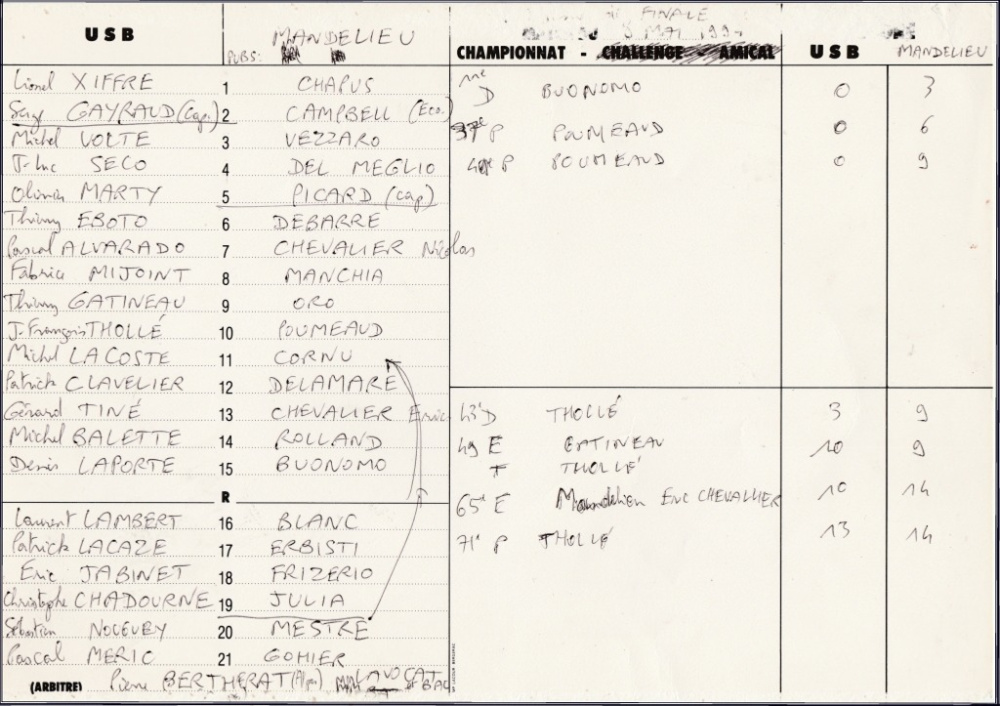 USB MANDELIEU
PUBS:
FINALE
MAI
CHAMPIONNAT - CHALLENGE - AMICAL USB MANDELIEU
Lionel XIFFRE 1 CHAPUS
Serge GAYRAUD (Cap.) 2 CAMPBELL (Eco.)
Michel VOLTE 3 VEZZARO
J-Luc SECO 4 DEL MEGLIO
Olivier MARTY 5 PICARD (cap)
Thierry EBOTO 6 DEBARRE
Pascal ALVARADO 7 CHEVALIER Nicolas
Fabrice MIJOINT 8 MANCHIA
Thierry GATINEAU 9 ORO
J-François THOLLÉ 10 POUMEAUD
Michel LACOSTE 11 CORNU
Patrick CLAVELIER 12 DELAMARE
Gérard TINÉ 13 CHEVALIER Eric
Michel BALETTE 14 ROLLAND
Denis LAPORTE 15 BUONOMO
R
Laurent LAMBERT 16 BLANC
Patrick LACAZE 17 ERBISTI
Eric JABINET 18 FRIZERIO
Christophe CHADOURNE 19 JULIA
Sébastien 20 MESTRE
Pascal MERIC 21 GOHIER
(ARBITRE) Pierre BERTHERAT (Alpes)
D BUONOMO 0 3
37e P POUMEAUD 0 6
P POUMEAUD 0 9
43' D THOLLÉ 3 9
49 E GATINEAU 10 9
T THOLLÉ
65' E Mandelieu Eric CHEVALLIER 10 14
71' P THOLLÉ 13 14